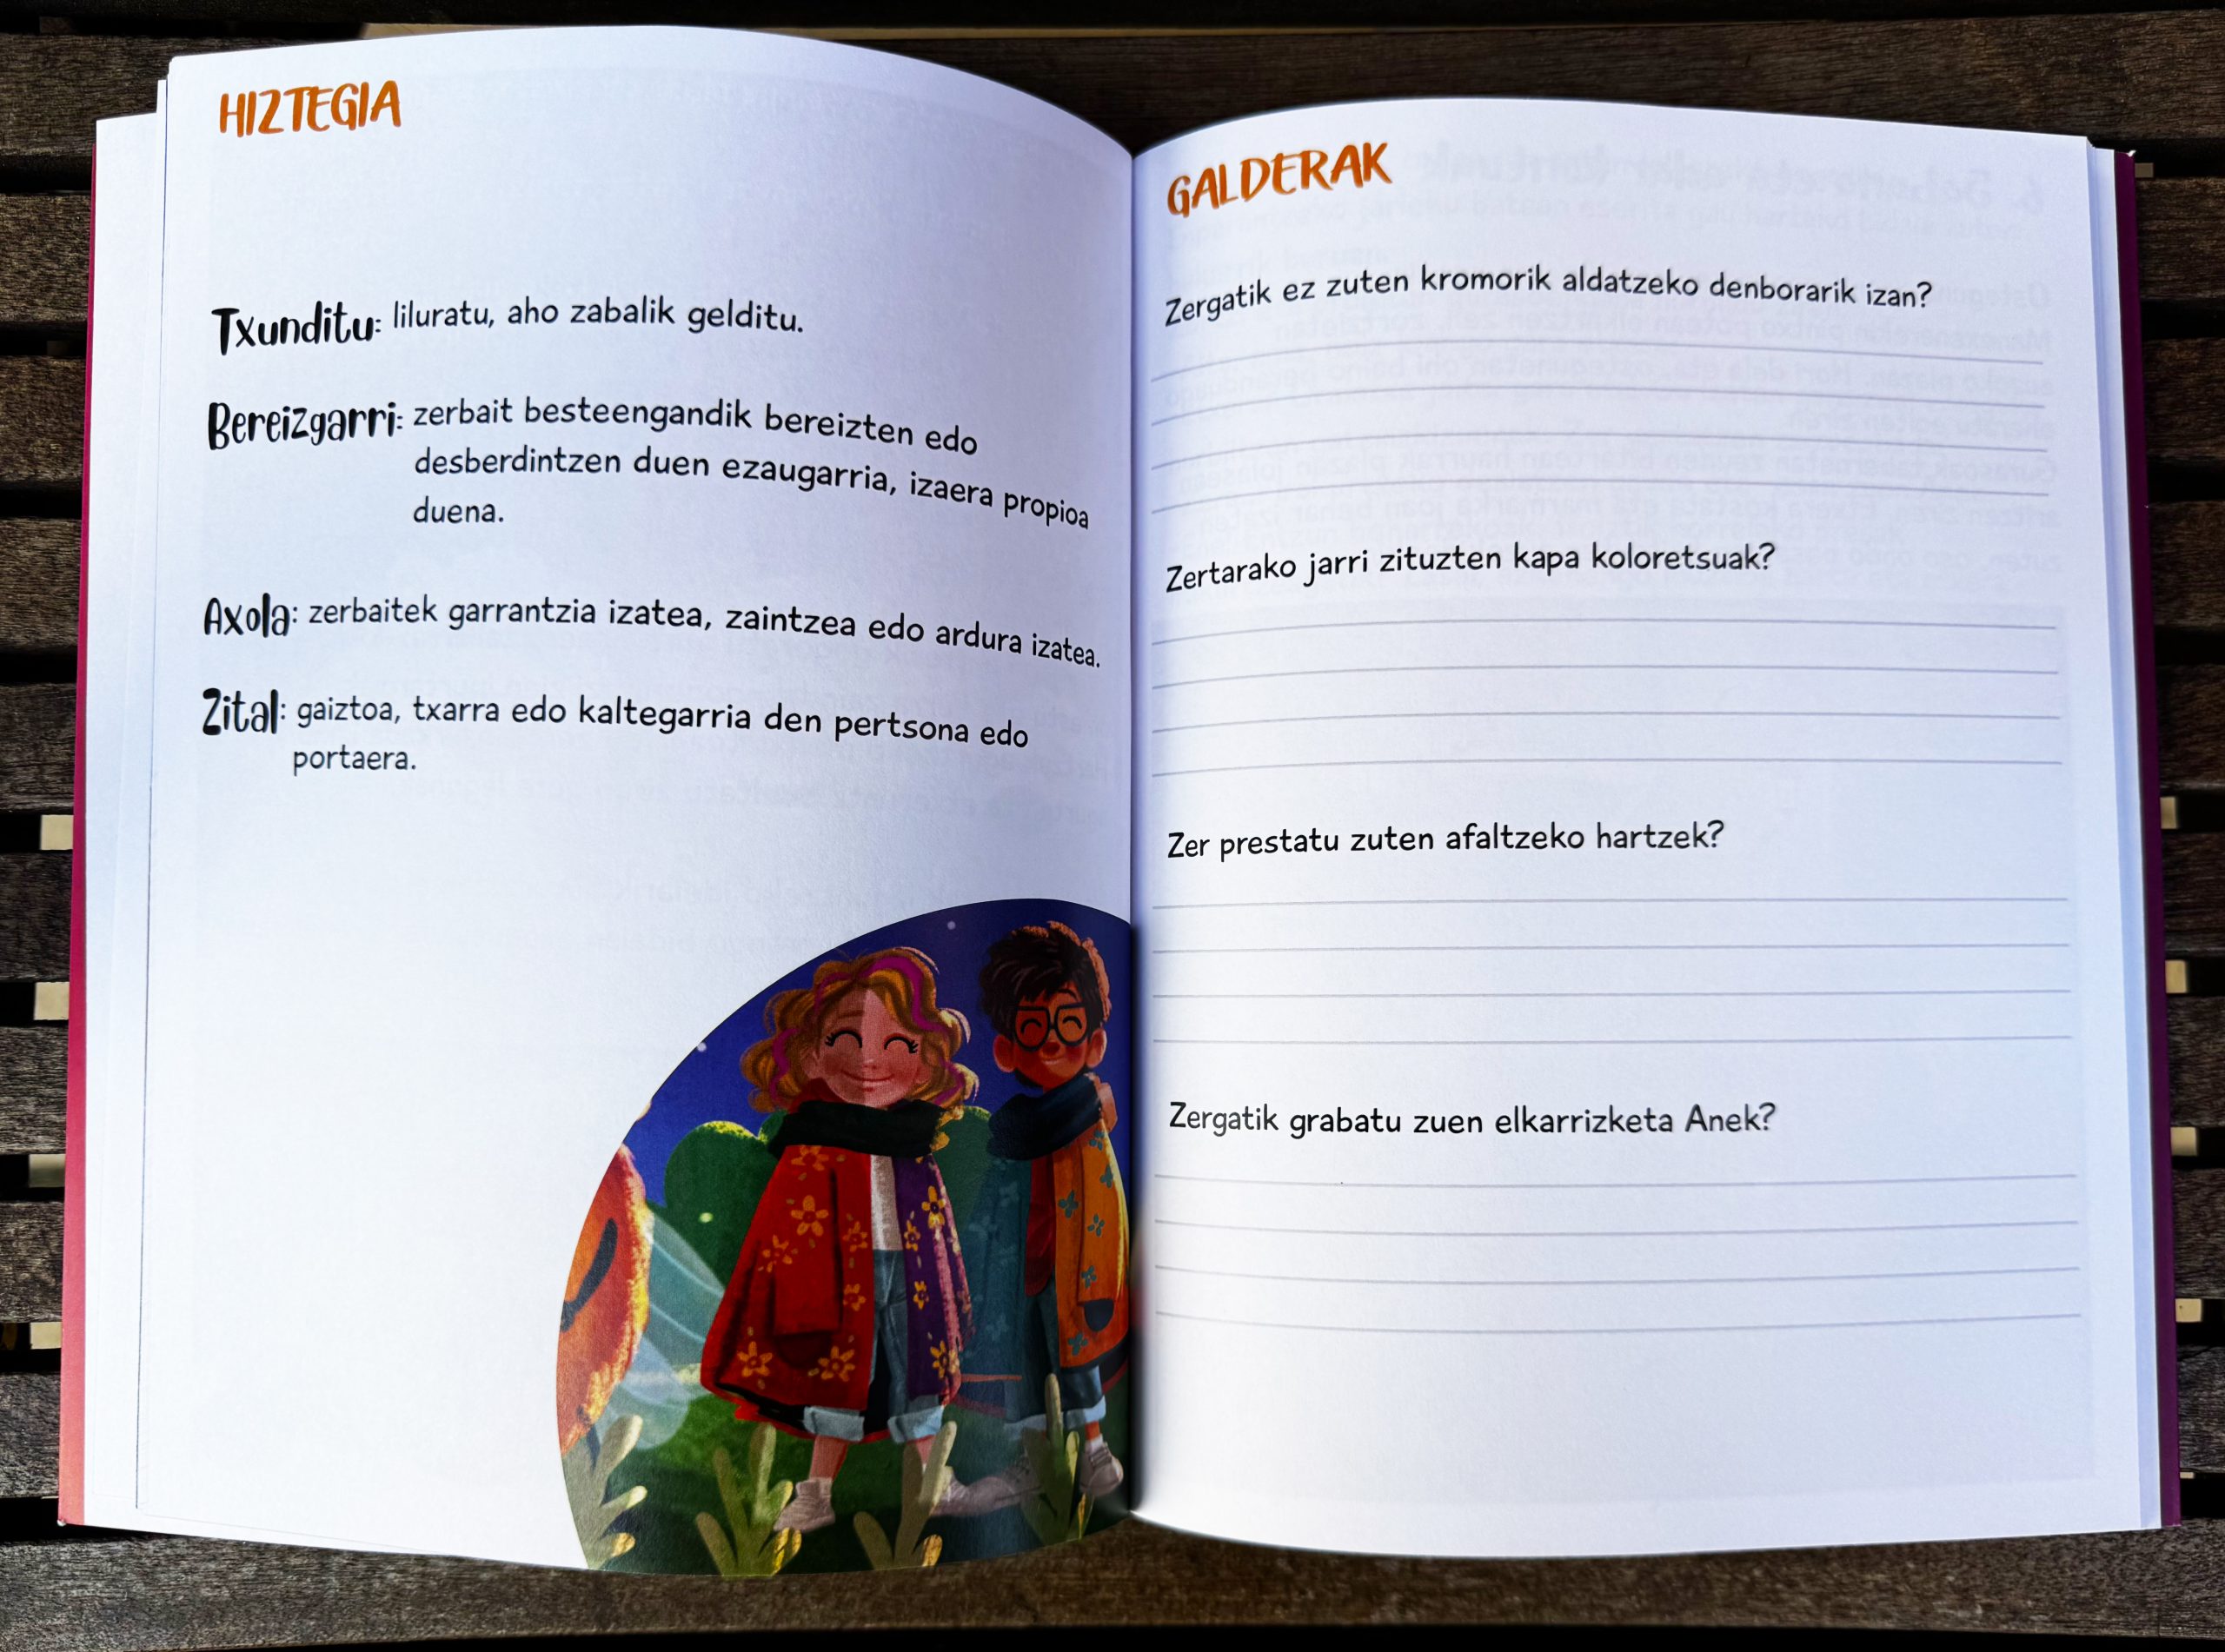 HIZTEGIA
Txunditu: liluratu, aho zabalik gelditu.
Bereizgarri: zerbait besteengandik bereizten edo
desberdintzen duen ezaugarria, izaera propioa
duena.
Axola: zerbaitek garrantzia izatea, zaintzea edo ardura izatea.
Zital: gaiztoa, txarra edo kaltegarria den pertsona edo
portaera.
GALDERAK
Zergatik ez zuten kromorik aldatzeko denborarik izan?
Zertarako jarri zituzten kapa koloretsuak?
Zer prestatu zuten afaltzeko hartzek?
Zergatik grabatu zuen elkarrizketa Anek?